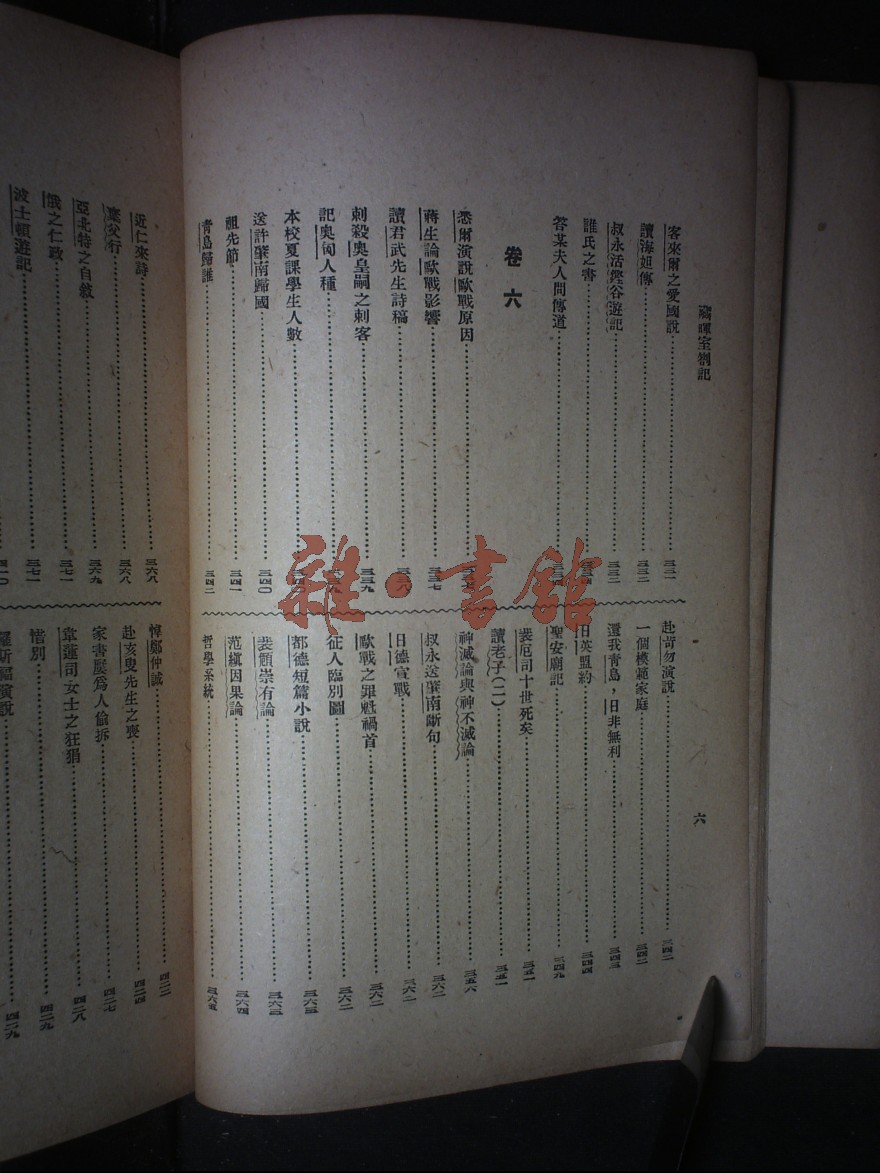 藏暉室劄記
客來爾之愛國說……三三一
讀海姐傳……三三二
叔永活鏗谷遊記……三三二
誰氏之書
答某夫人問傳道
卷六
悉爾演說歐戰原因
蔣生論歐戰影響……三三七
讀君武先生詩稿
刺殺奧皇嗣之刺客……三三九
記奧匈人種
本校夏課學生人數
送許肇南歸國……三四〇
祖先節……三四一
青島歸誰……三四二
赴苛勿演說……三四二
一個模範家庭……三四二
還我青島，日非無利……三四三
日英盟約……三四四
聖安廟記……三四九
裴厄司十世死矣……三五一
讀老子（二）……三五一
神滅論與神不滅論……三五六
叔永送肇南斷句……三六二
日德宣戰……三六二
歐戰之罪魁禍首……三六二
征人臨別圖……三六二
都德短篇小說……三六三
裴頠崇有論……三六三
范縝因果論……三六四
哲學系統……三六五
六
近仁來詩……三六八
棄父行……三六八
亞北特之自敘……三六九
俄之仁政……三七一
波士頓遊記……三七一
悼鄭仲誠……四二二
赴亥叟先生之喪……四二四
家書屢為人偷拆……四二七
韋蓮司女士之狂狷……四二八
惜別……四二九
羅斯福演說……四二九
雜·書館